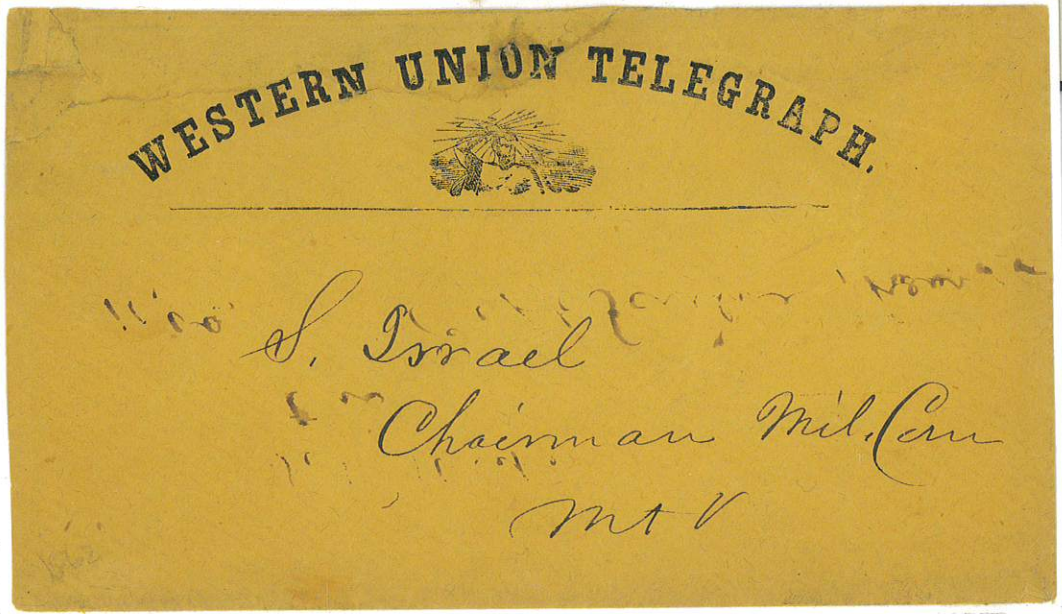 WESTERN UNION TELEGRAPH.
S. Israel
Chairman Mil. Com
Mt V
1862